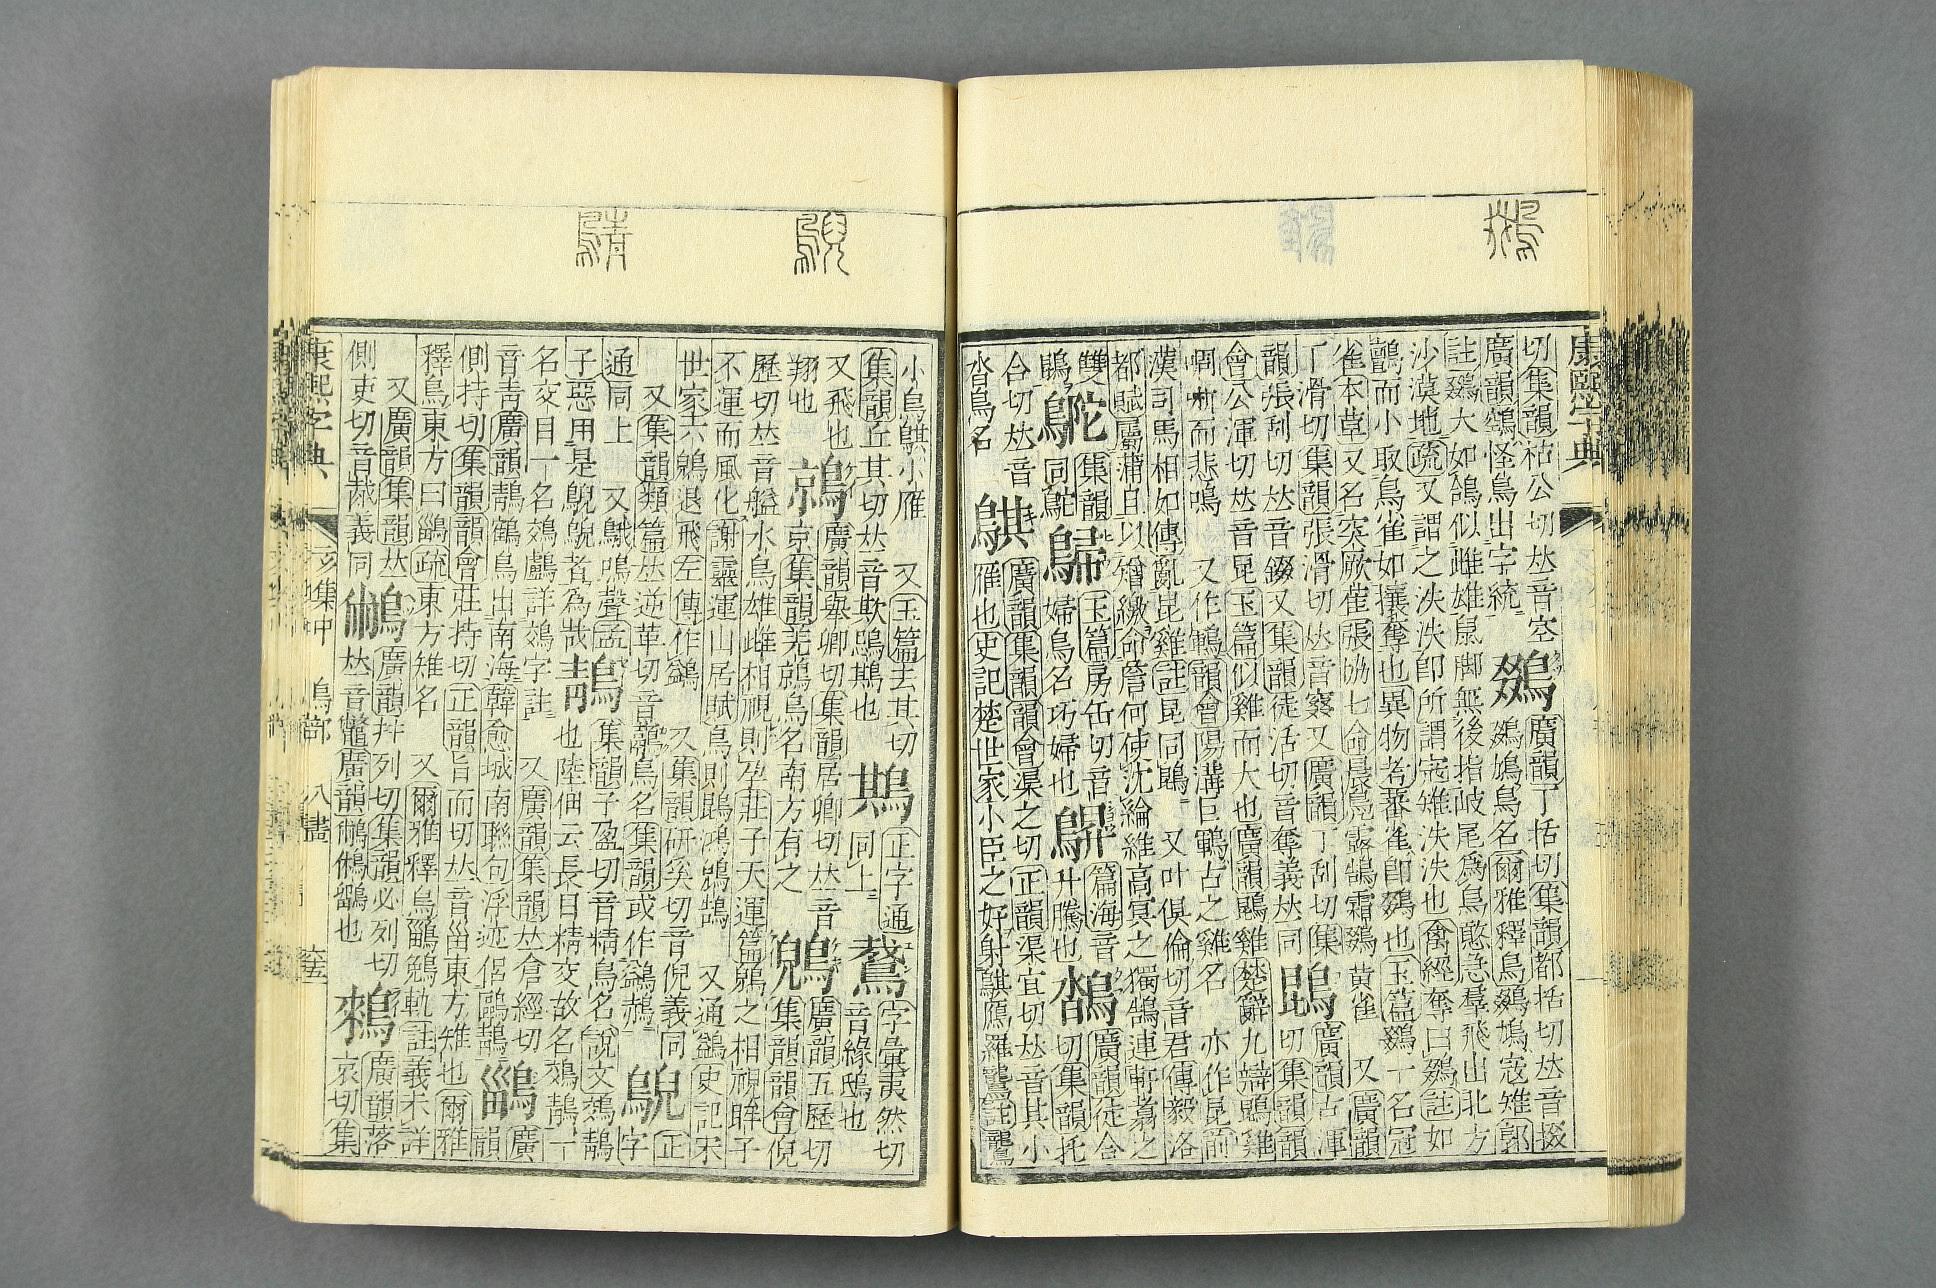 康熙字典
切集韻枯公切𠀤音空
鵽
廣韻丁括切集韻都括切𠀤音掇
廣韻鵼怪鳥出字統
鵽鳩鳥名爾雅釋鳥鵽鳩寇雉郭
註鵽大如鴿似雌雉鼠脚無後指岐尾爲鳥憨急羣飛出北方
沙漠地疏又謂之泆泆卽所謂寇雉泆泆也禽經奪曰鵽註如
鸇而小取鳥雀如攘奪也異物考蕃雀卽鵽也玉篇鵽一名冠
雀本草又名突厥雀張協七命晨鳧露鵠霜鵽黃雀 又廣韻
丁滑切集韻張滑切𠀤音窡又廣韻丁刮切集
韻張刮切𠀤音錣又集韻徒活切音奪義𠀤同
鵾
廣韻古渾
切集韻
會公渾切𠀤音昆玉篇似雞而大也廣韻鵾雞楚辭九辯鵾雞
啁哳而悲鳴 又作鶤韻會陽溝巨鶤古之雞名 亦作昆前
漢司馬相如傳亂昆雞註昆同鵾 又叶俱倫切音君傅毅洛
都賦屬蒲且以矰繳命詹何使沈綸維高冥之獨鵠連軒翥之
雙鵾
集韻
同鴕
玉篇房缶切音
婦鳥名巧婦也
篇海音
升騰也
廣韻徒合
切集韻托
合切𠀤音
沓鳥名
廣韻集韻韻會渠之切正韻渠宜切𠀤音其小
雁也史記楚世家小臣之好射鶀鴈羅鸗註鸗
小鳥鶀小雁 又玉篇去其切
集韻丘其切𠀤音欺鵋鶀也
正字通
同上
字彙夷然切
音緣鴟也
又飛也
翔也
廣韻舉卿切集韻居卿切𠀤音
京集韻羌鶁鳥名南方有之
廣韻五歷切
集韻韻會倪
歷切𠀤音鷁水鳥雄雌相視則孕莊子天運篇鶂之相視眸子
不運而風化謝靈運山居賦鳥則鵾鴻鶂鵠 又通鷁史記宋
世家六鶂退飛左傳作鷁 又集韻研奚切音倪義同
又集韻類篇𠀤逆革切音虉鳥名集韻或作鷁鷊
正
字
通同上 又鶃鶃鳴聲孟
子惡用是鶃鶃者爲哉
鶄
集韻子盈切音精鳥名說文鵁鶄
也陸佃云長目精交故名鵁鶄一
名交目一名鵁鸕詳鵁字註 又廣韻集韻𠀤倉經切
音青廣韻鶄鶴鳥出南海韓愈城南聯句浮迹侶鷗鶄
鶅
廣
韻
側持切集韻韻會莊持切正韻旨而切𠀤音甾東方雉也爾雅
釋鳥東方曰鶅疏東方雉名 又爾雅釋鳥鶅鶨軌註義未詳
又廣韻集韻𠀤
側吏切音胾義同
廣韻幷列切集韻必列切
𠀤音鼈廣韻
鶆
廣韻落
哀切集
康熙字典
亥集中 鳥部 八畫